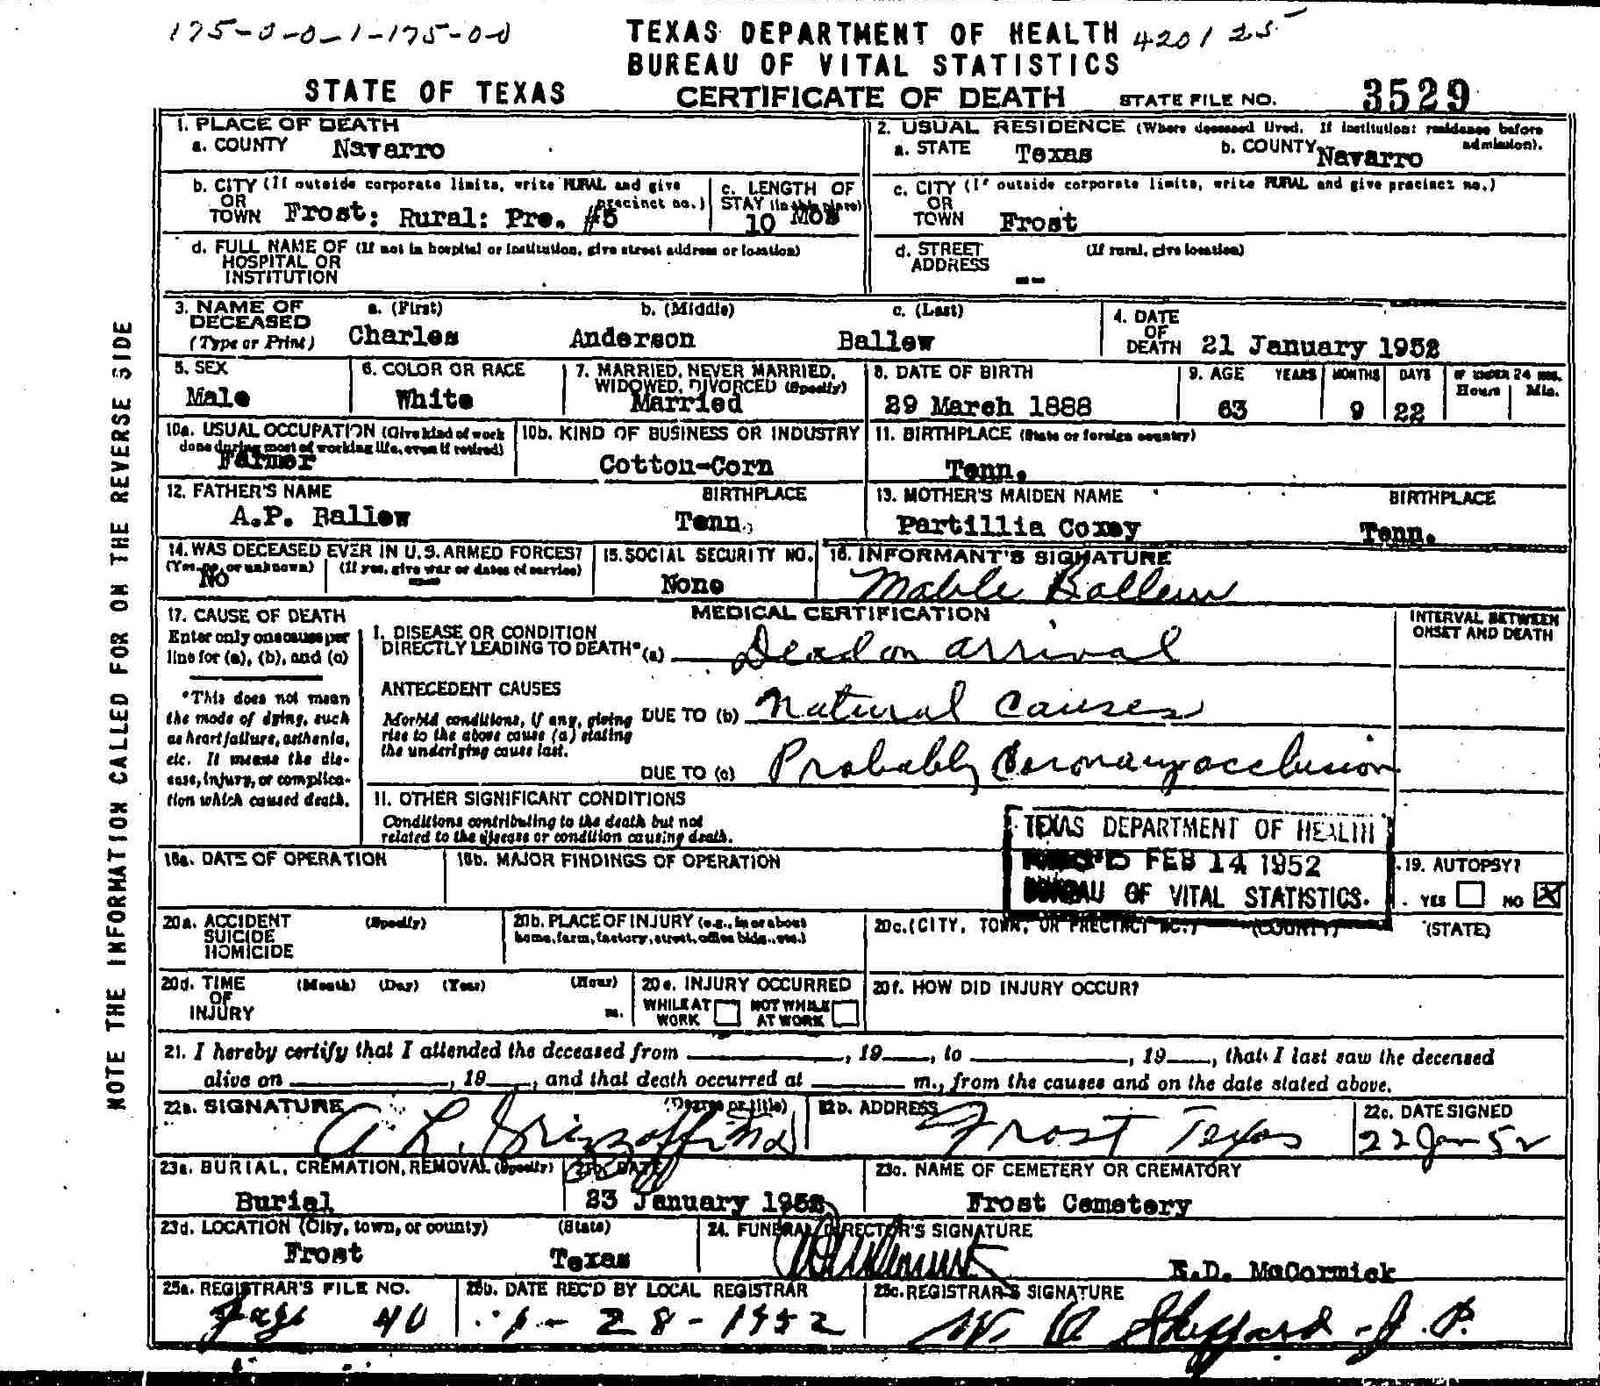 175-0-0-1-175-00
TEXAS DEPARTMENT OF HEALTH 4201 25
BUREAU OF VITAL STATISTICS
STATE OF TEXAS CERTIFICATE OF DEATH STATE FILE NO. 3529
NOTE THE INFORMATION CALLED FOR ON THE REVERSE SIDE
1. PLACE OF DEATH
a. COUNTY Navarro
2. USUAL RESIDENCE (Where deceased lived. If institution: residence before admission).
a. STATE Texas b. COUNTY Navarro
b. CITY (If outside corporate limits, write RURAL and give precinct no.)
OR
TOWN Frost: Rural: Pre. #5
c. LENGTH OF
STAY (in this place)
10 Mos
c. CITY (If outside corporate limits, write RURAL and give precinct no.)
OR
TOWN Frost
d. FULL NAME OF (If not in hospital or institution, give street address or location)
HOSPITAL OR
INSTITUTION
d. STREET (If rural, give location)
ADDRESS --
3. NAME OF a. (First) b. (Middle) c. (Last)
DECEASED
(Type or Print) Charles Anderson Ballew
4. DATE
OF
DEATH 21 January 1952
5. SEX
Male
6. COLOR OR RACE
White
7. MARRIED, NEVER MARRIED,
WIDOWED, DIVORCED (Specify)
Married
8. DATE OF BIRTH
29 March 1888
9. AGE YEARS MONTHS DAYS IF UNDER 24 HRS.
Hours Min.
63 9 22
10a. USUAL OCCUPATION (Give kind of work
done during most of working life, even if retired)
Farmer
10b. KIND OF BUSINESS OR INDUSTRY
Cotton-Corn
11. BIRTHPLACE (State or foreign country)
Tenn.
12. FATHER'S NAME BIRTHPLACE
A.P. Ballew Tenn.
13. MOTHER'S MAIDEN NAME BIRTHPLACE
Partillia Coxey Tenn.
14. WAS DECEASED EVER IN U.S. ARMED FORCES?
(Yes, no, or unknown) (If yes, give war or dates of service)
No --
15. SOCIAL SECURITY NO.
None
16. INFORMANT'S SIGNATURE
Mable Ballew
17. CAUSE OF DEATH
Enter only one cause per
line for (a), (b), and (c)
*This does not mean
the mode of dying, such
as heart failure, asthenia,
etc. It means the dis-
ease, injury, or complica-
tion which caused death.
MEDICAL CERTIFICATION
INTERVAL BETWEEN
ONSET AND DEATH
I. DISEASE OR CONDITION
DIRECTLY LEADING TO DEATH* (a) Dead on arrival
ANTECEDENT CAUSES
Morbid conditions, if any, giving
rise to the above cause (a) stating
the underlying cause last.
DUE TO (b) Natural Causes
DUE TO (c) Probably Coronary occlusion
II. OTHER SIGNIFICANT CONDITIONS
Conditions contributing to the death but not
related to the disease or condition causing death.
TEXAS DEPARTMENT OF HEALTH
REC'D FEB 14 1952
BUREAU OF VITAL STATISTICS.
18a. DATE OF OPERATION
18b. MAJOR FINDINGS OF OPERATION
19. AUTOPSY?
YES NO X
20a. ACCIDENT (Specify)
SUICIDE
HOMICIDE
20b. PLACE OF INJURY (e.g., in or about
home, farm, factory, street, office bldg., etc.)
20c. (CITY, TOWN, OR PRECINCT NO.) (COUNTY) (STATE)
20d. TIME (Month) (Day) (Year) (Hour)
OF
INJURY m.
20e. INJURY OCCURRED
WHILE AT WORK NOT WHILE AT WORK
20f. HOW DID INJURY OCCUR?
21. I hereby certify that I attended the deceased from , 19 , to , 19 , that I last saw the deceased
alive on , 19 , and that death occurred at m., from the causes and on the date stated above.
22a. SIGNATURE (Degree or title)
A L. Grizzaffi Md
22b. ADDRESS
Frost Texas
22c. DATE SIGNED
22 Jan 52
23a. BURIAL, CREMATION, REMOVAL (Specify)
Burial
23b. DATE
23 January 1952
23c. NAME OF CEMETERY OR CREMATORY
Frost Cemetery
23d. LOCATION (City, town, or county) (State)
Frost Texas
24. FUNERAL DIRECTOR'S SIGNATURE
E.D. McCormick
25a. REGISTRAR'S FILE NO.
Page 40
25b. DATE REC'D BY LOCAL REGISTRAR
1-28-1952
25c. REGISTRAR'S SIGNATURE
Sheppard J.P.